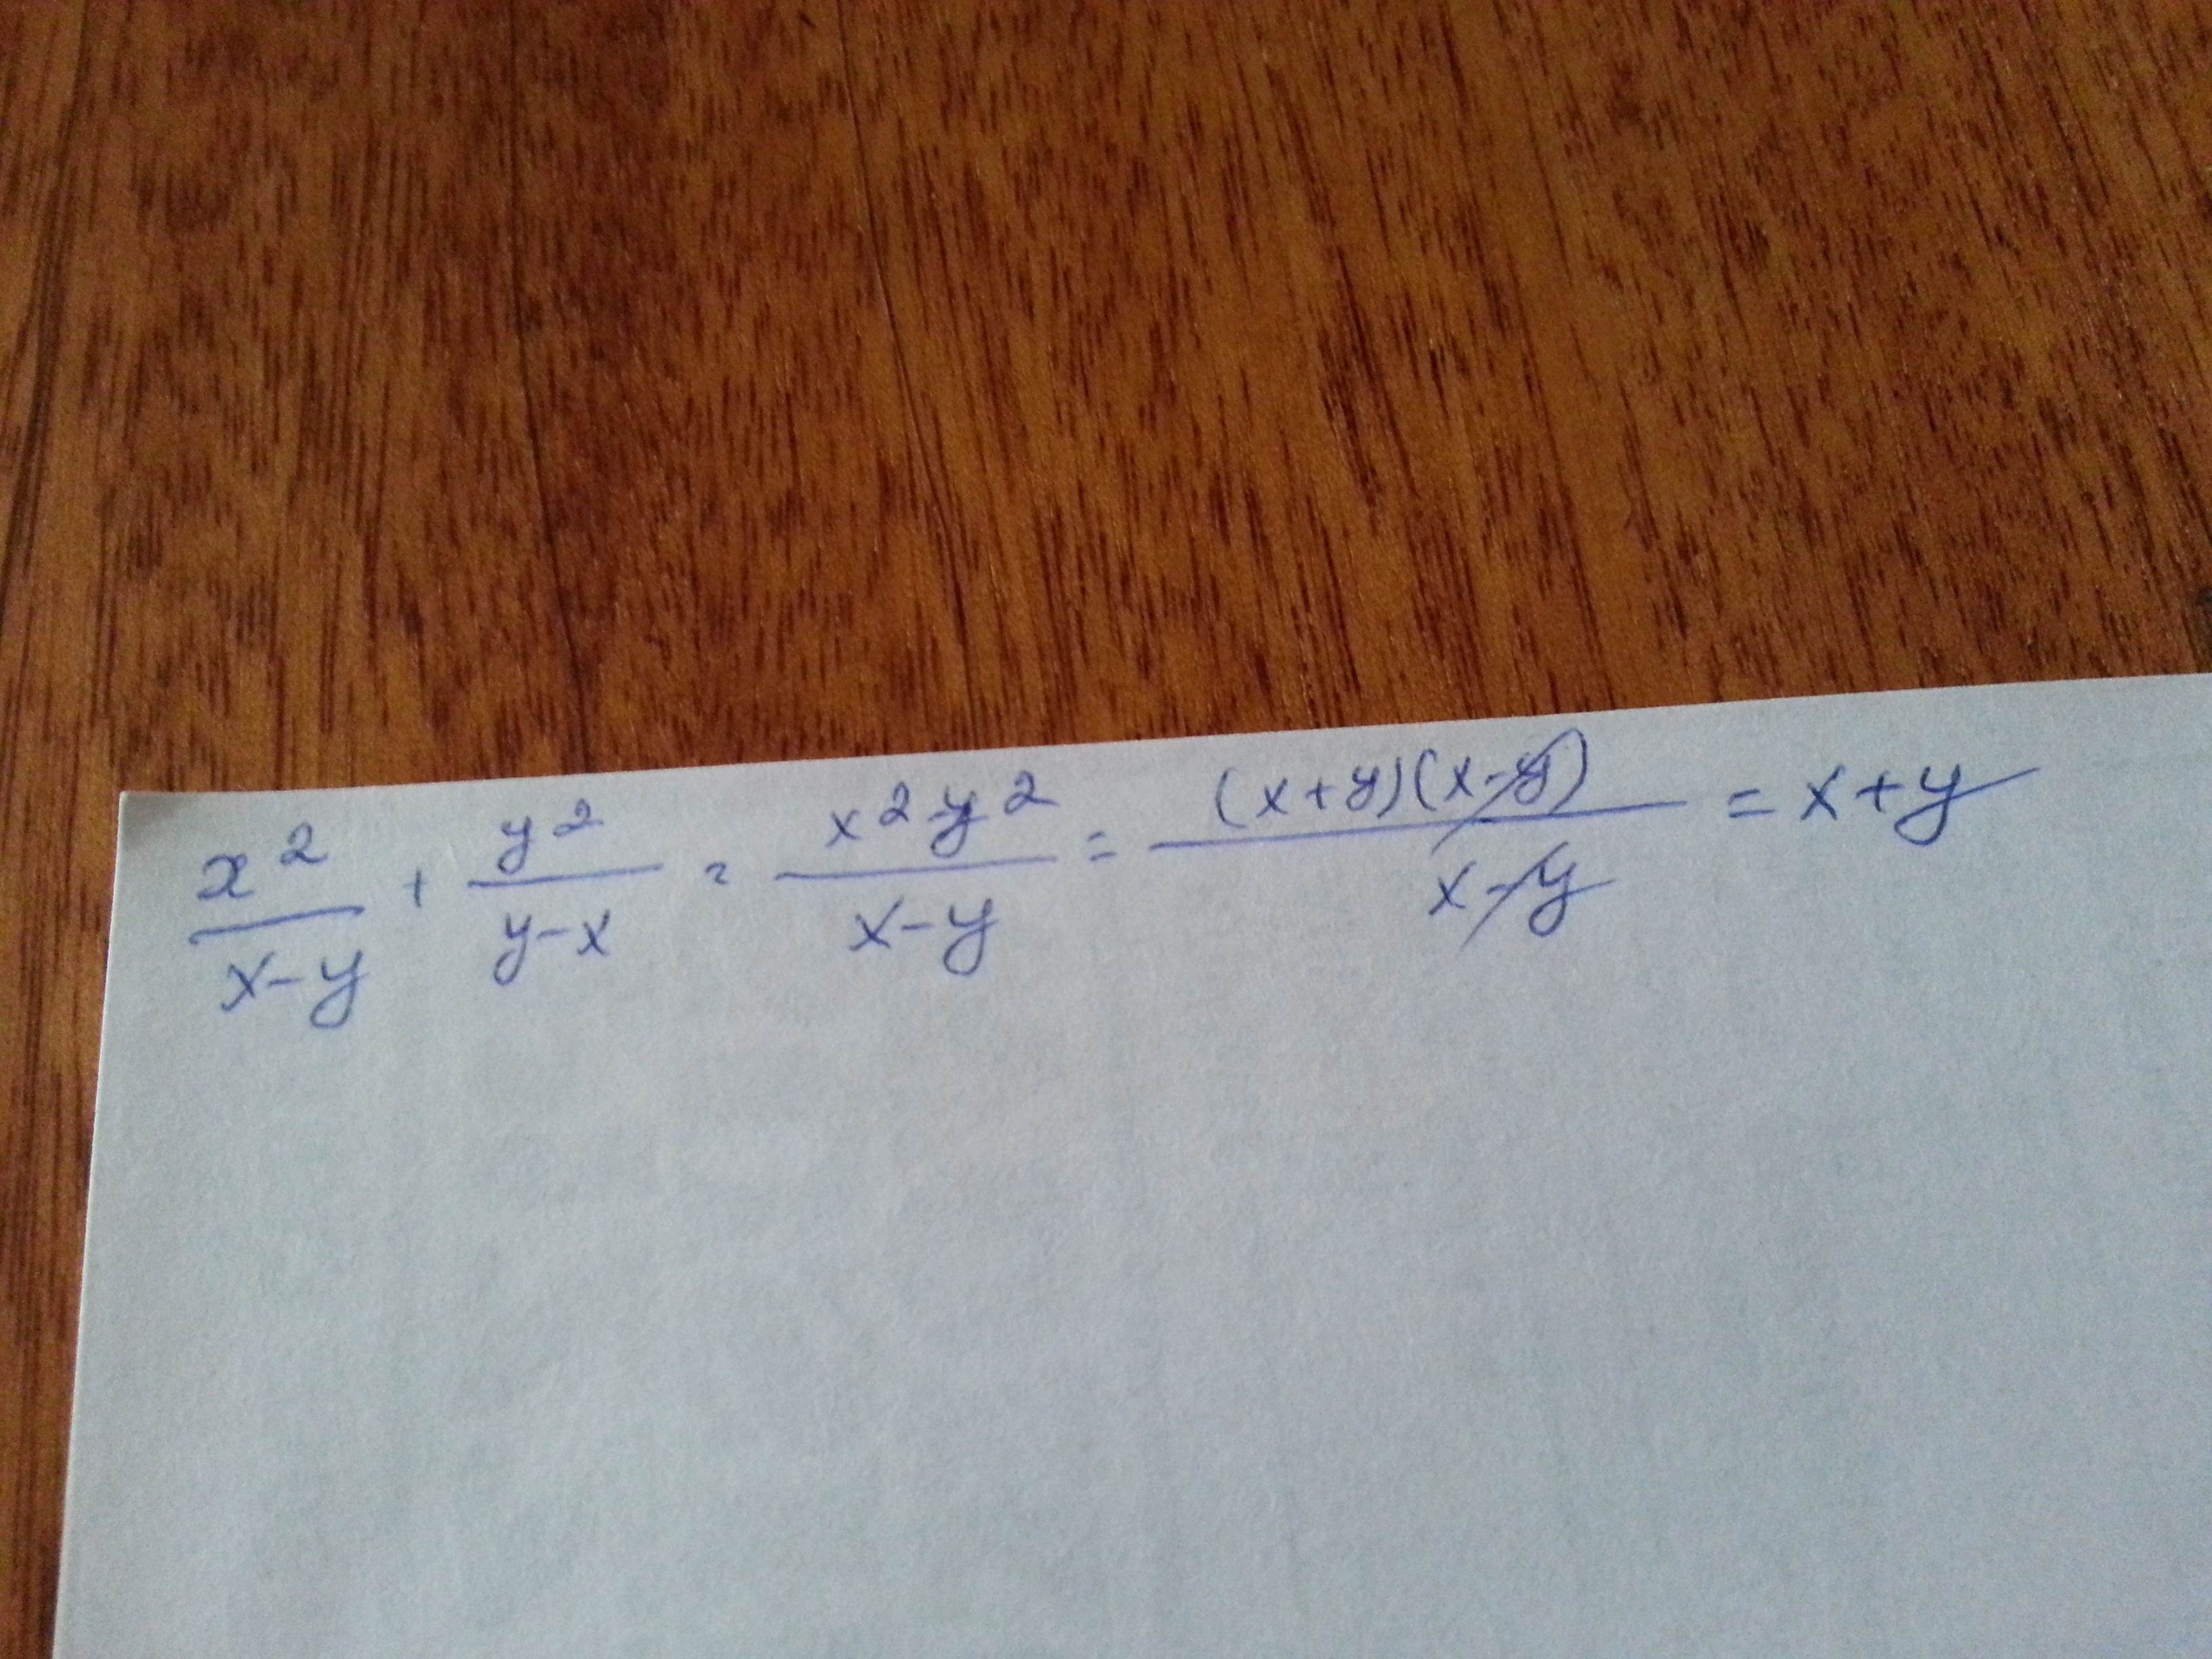 x²/(x-y) + y²/(y-x) = (x²-y²)/(x-y) = (x+y)(x-y)/(x-y) = x+y